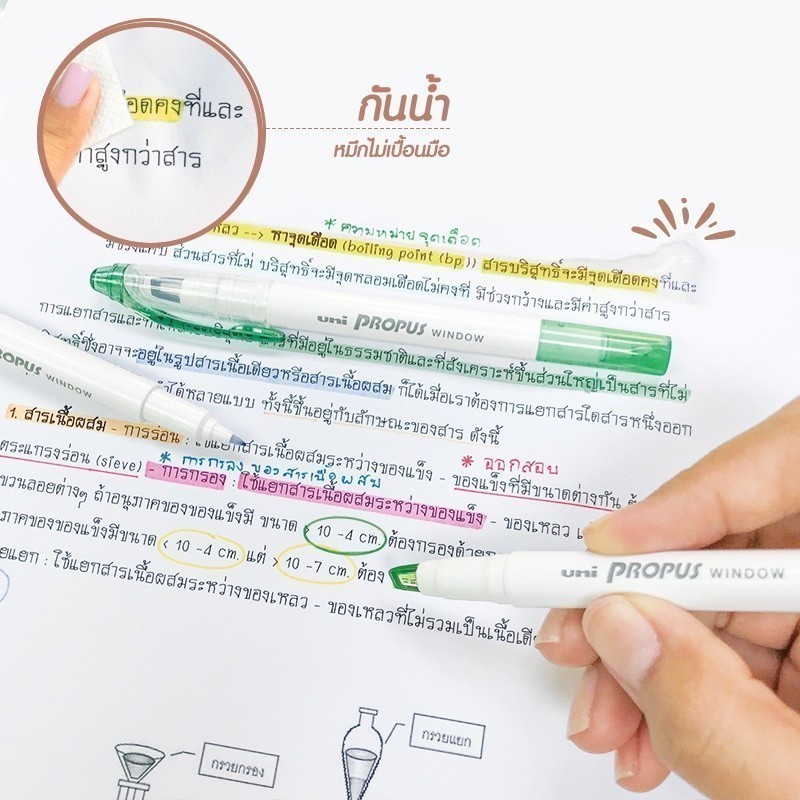 อดคงที่และ
ค่าสูงกว่าสาร
กันน้ำ
หมึกไม่เปื้อนมือ
* ความหมายจุดเดือด
หลว --> หาจุดเดือด (boiling point (bp)) สารบริสุทธิ์จะมีจุดเดือดคงที่และ
ส่วนสารที่ไม่ บริสุทธิ์จะมีจุดหลอมเดือดไม่คงที่ มีช่วงกว้างและมีค่าสูงกว่าสาร
uni PROPUS WINDOW
การแยกสารและ สารที่มีอยู่ในธรรมชาติและที่สังเคราะห์ขึ้นส่วนใหญ่เป็นสารที่ไม่
PROPUS WINDOW
ซึ่งอาจจะอยู่ในรูปสารเนื้อเดียวหรือสารเนื้อผสม ก็ได้เมื่อเราต้องการแยกสารใดสารหนึ่งออก
ได้หลายแบบ ทั้งนี้ขึ้นอยู่กับลักษณะของสาร ดังนี้
1. สารเนื้อผสม - การร่อน : ใช้แยกสารเนื้อผสมระหว่างของแข็ง - ของแข็งที่มีขนาดต่างกัน
* การกรอง ของสารเนื้อผสม
* ออกสอบ
ตระแกรงร่อน (sieve) - การกรอง : ใช้แยกสารเนื้อผสมระหว่างของแข็ง - ของเหลว
ขวนลอยต่างๆ ถ้าอนุภาคของของแข็งมี ขนาด > 10 -4 cm. ต้องกรองด้วย
ภาคของของแข็งมีขนาด < 10 -4 cm. แต่ > 10 -7 cm. ต้อง
uni PROPUS WINDOW
ยแยก : ใช้แยกสารเนื้อผสมระหว่างของเหลว - ของเหลวที่ไม่รวมเป็นเนื้อเดีย
กรวยกรอง
กรวยแยก